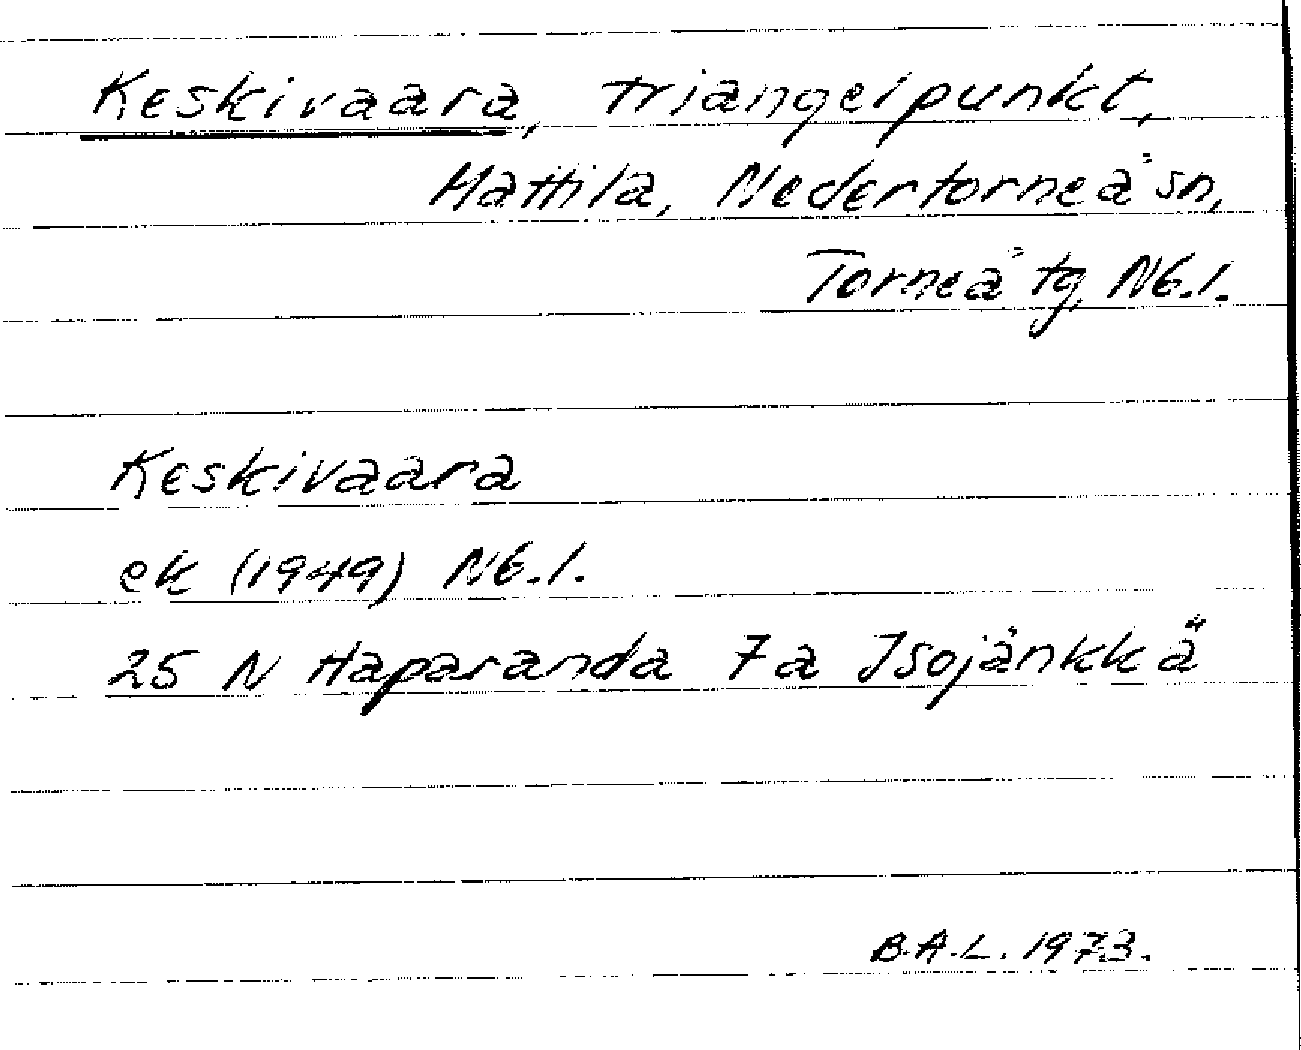 Keskivaara, triangelpunkt,
Mattila, Nedertorneå sn,
Torneå tg, Nb.l.
Keskivaara
ek (1949) Nb.l.
25 N Haparanda 7a Isojänkkä
B.A.L. 1973.